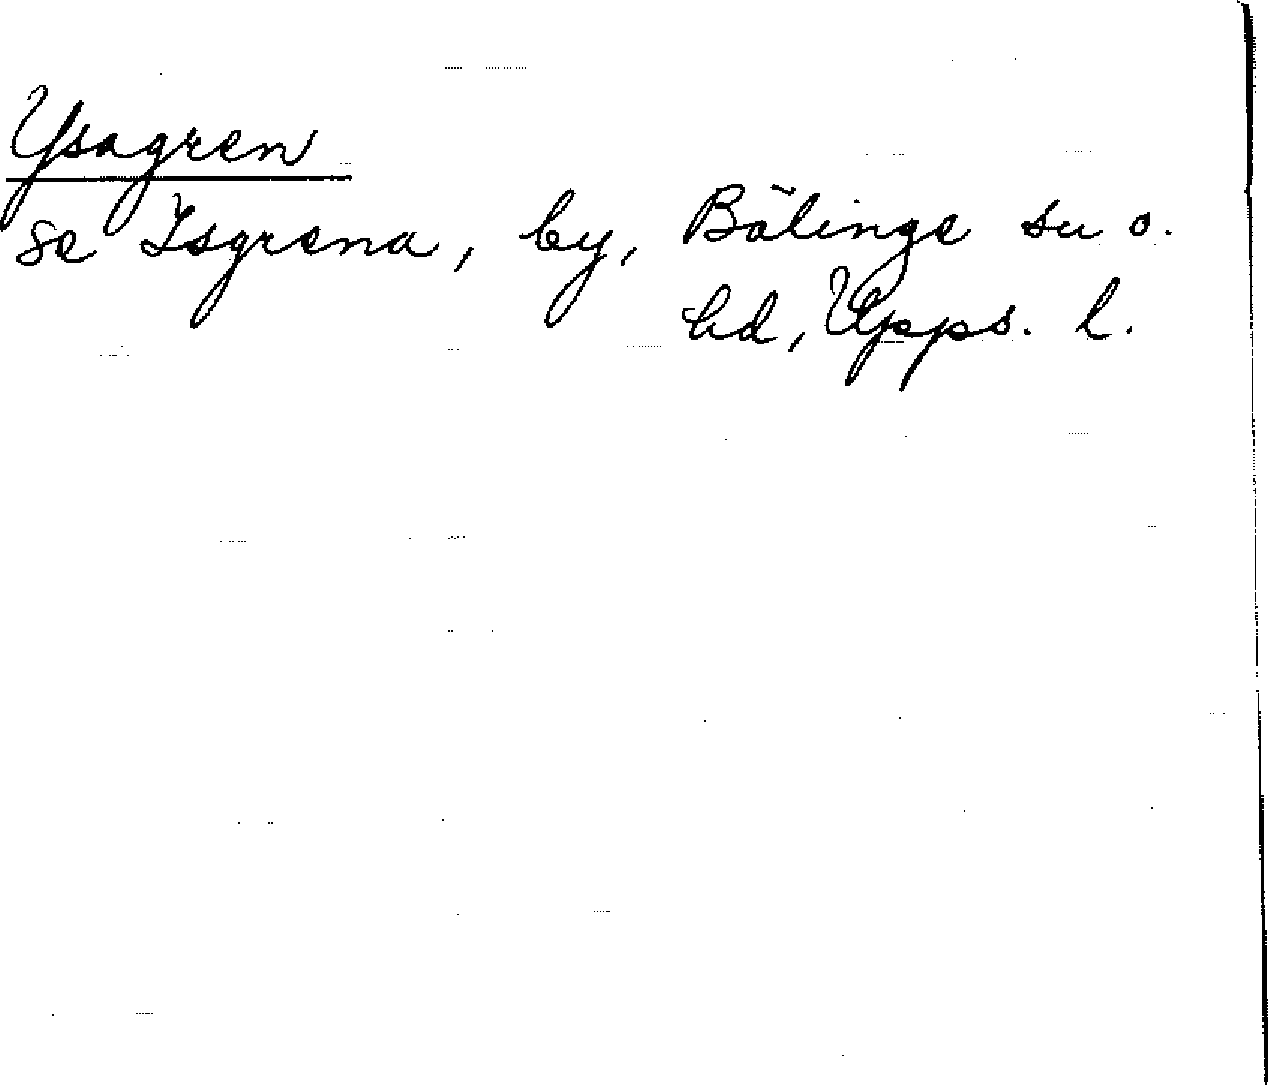 Ysagren
se Isgrena, by, Bälinge sn o.
hd, Upps. l.